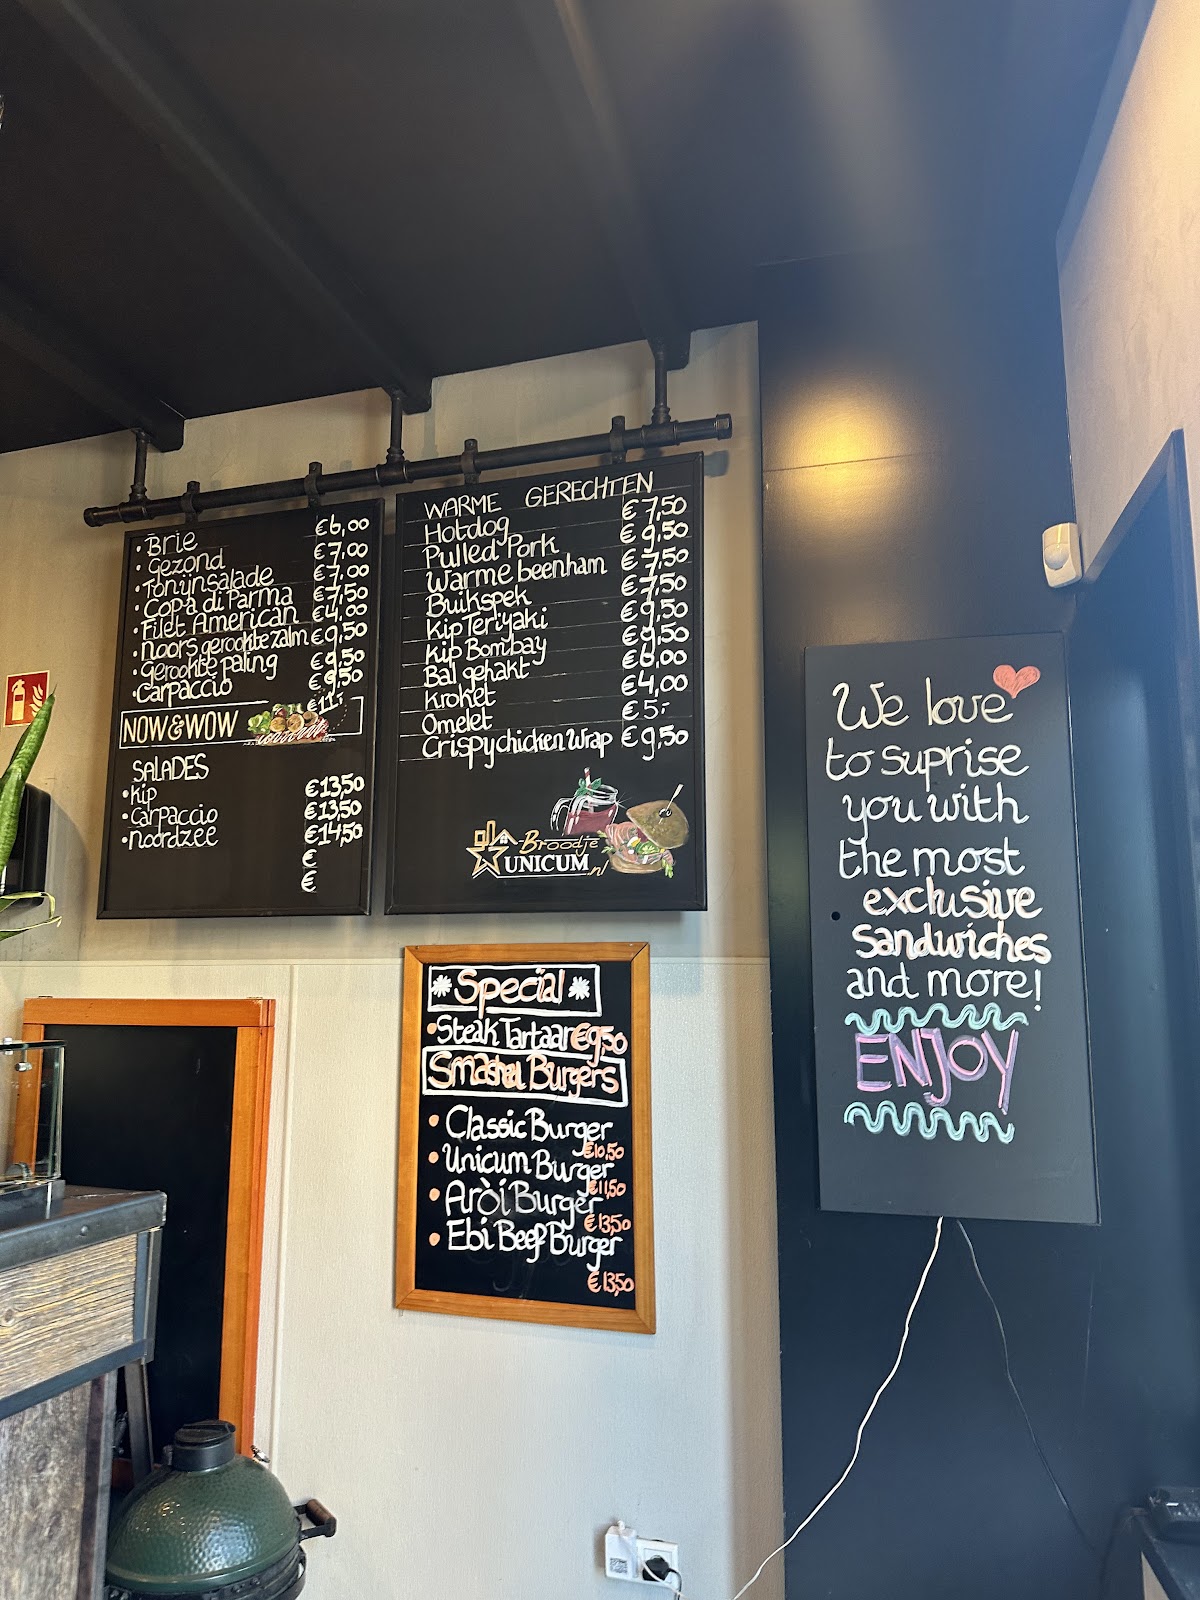 • Brie €6,00
• Gezond €7,00
• Tonijnsalade €7,00
• Copa di Parma €7,50
• Filet American €4,00
• Noors gerookte zalm €9,50
• Gerookte paling €9,50
• Carpaccio €9,50
€11,-
NOW&WOW
SALADES
• Kip €13,50
• Carpaccio €13,50
• Noordzee €14,50
€
€
WARME GERECHTEN
Hotdog €7,50
Pulled Pork €9,50
Warme beenham €7,50
Buikspek €7,50
Kip Teriyaki €9,50
Kip Bombay €9,50
Bal gehakt €6,00
Kroket €4,00
Omelet €5,-
Crispy chicken Wrap €9,50
Broodje
UNICUM.nl
Special
• Steak Tartaar €9,50
Smashed Burgers
• Classic Burger
€10,50
• Unicum Burger
€11,50
• Aròi Burger
€13,50
• Ebi Beef Burger
€13,50
We love
to suprise
you with
the most
exclusive
Sandwiches
and more!
ENJOY